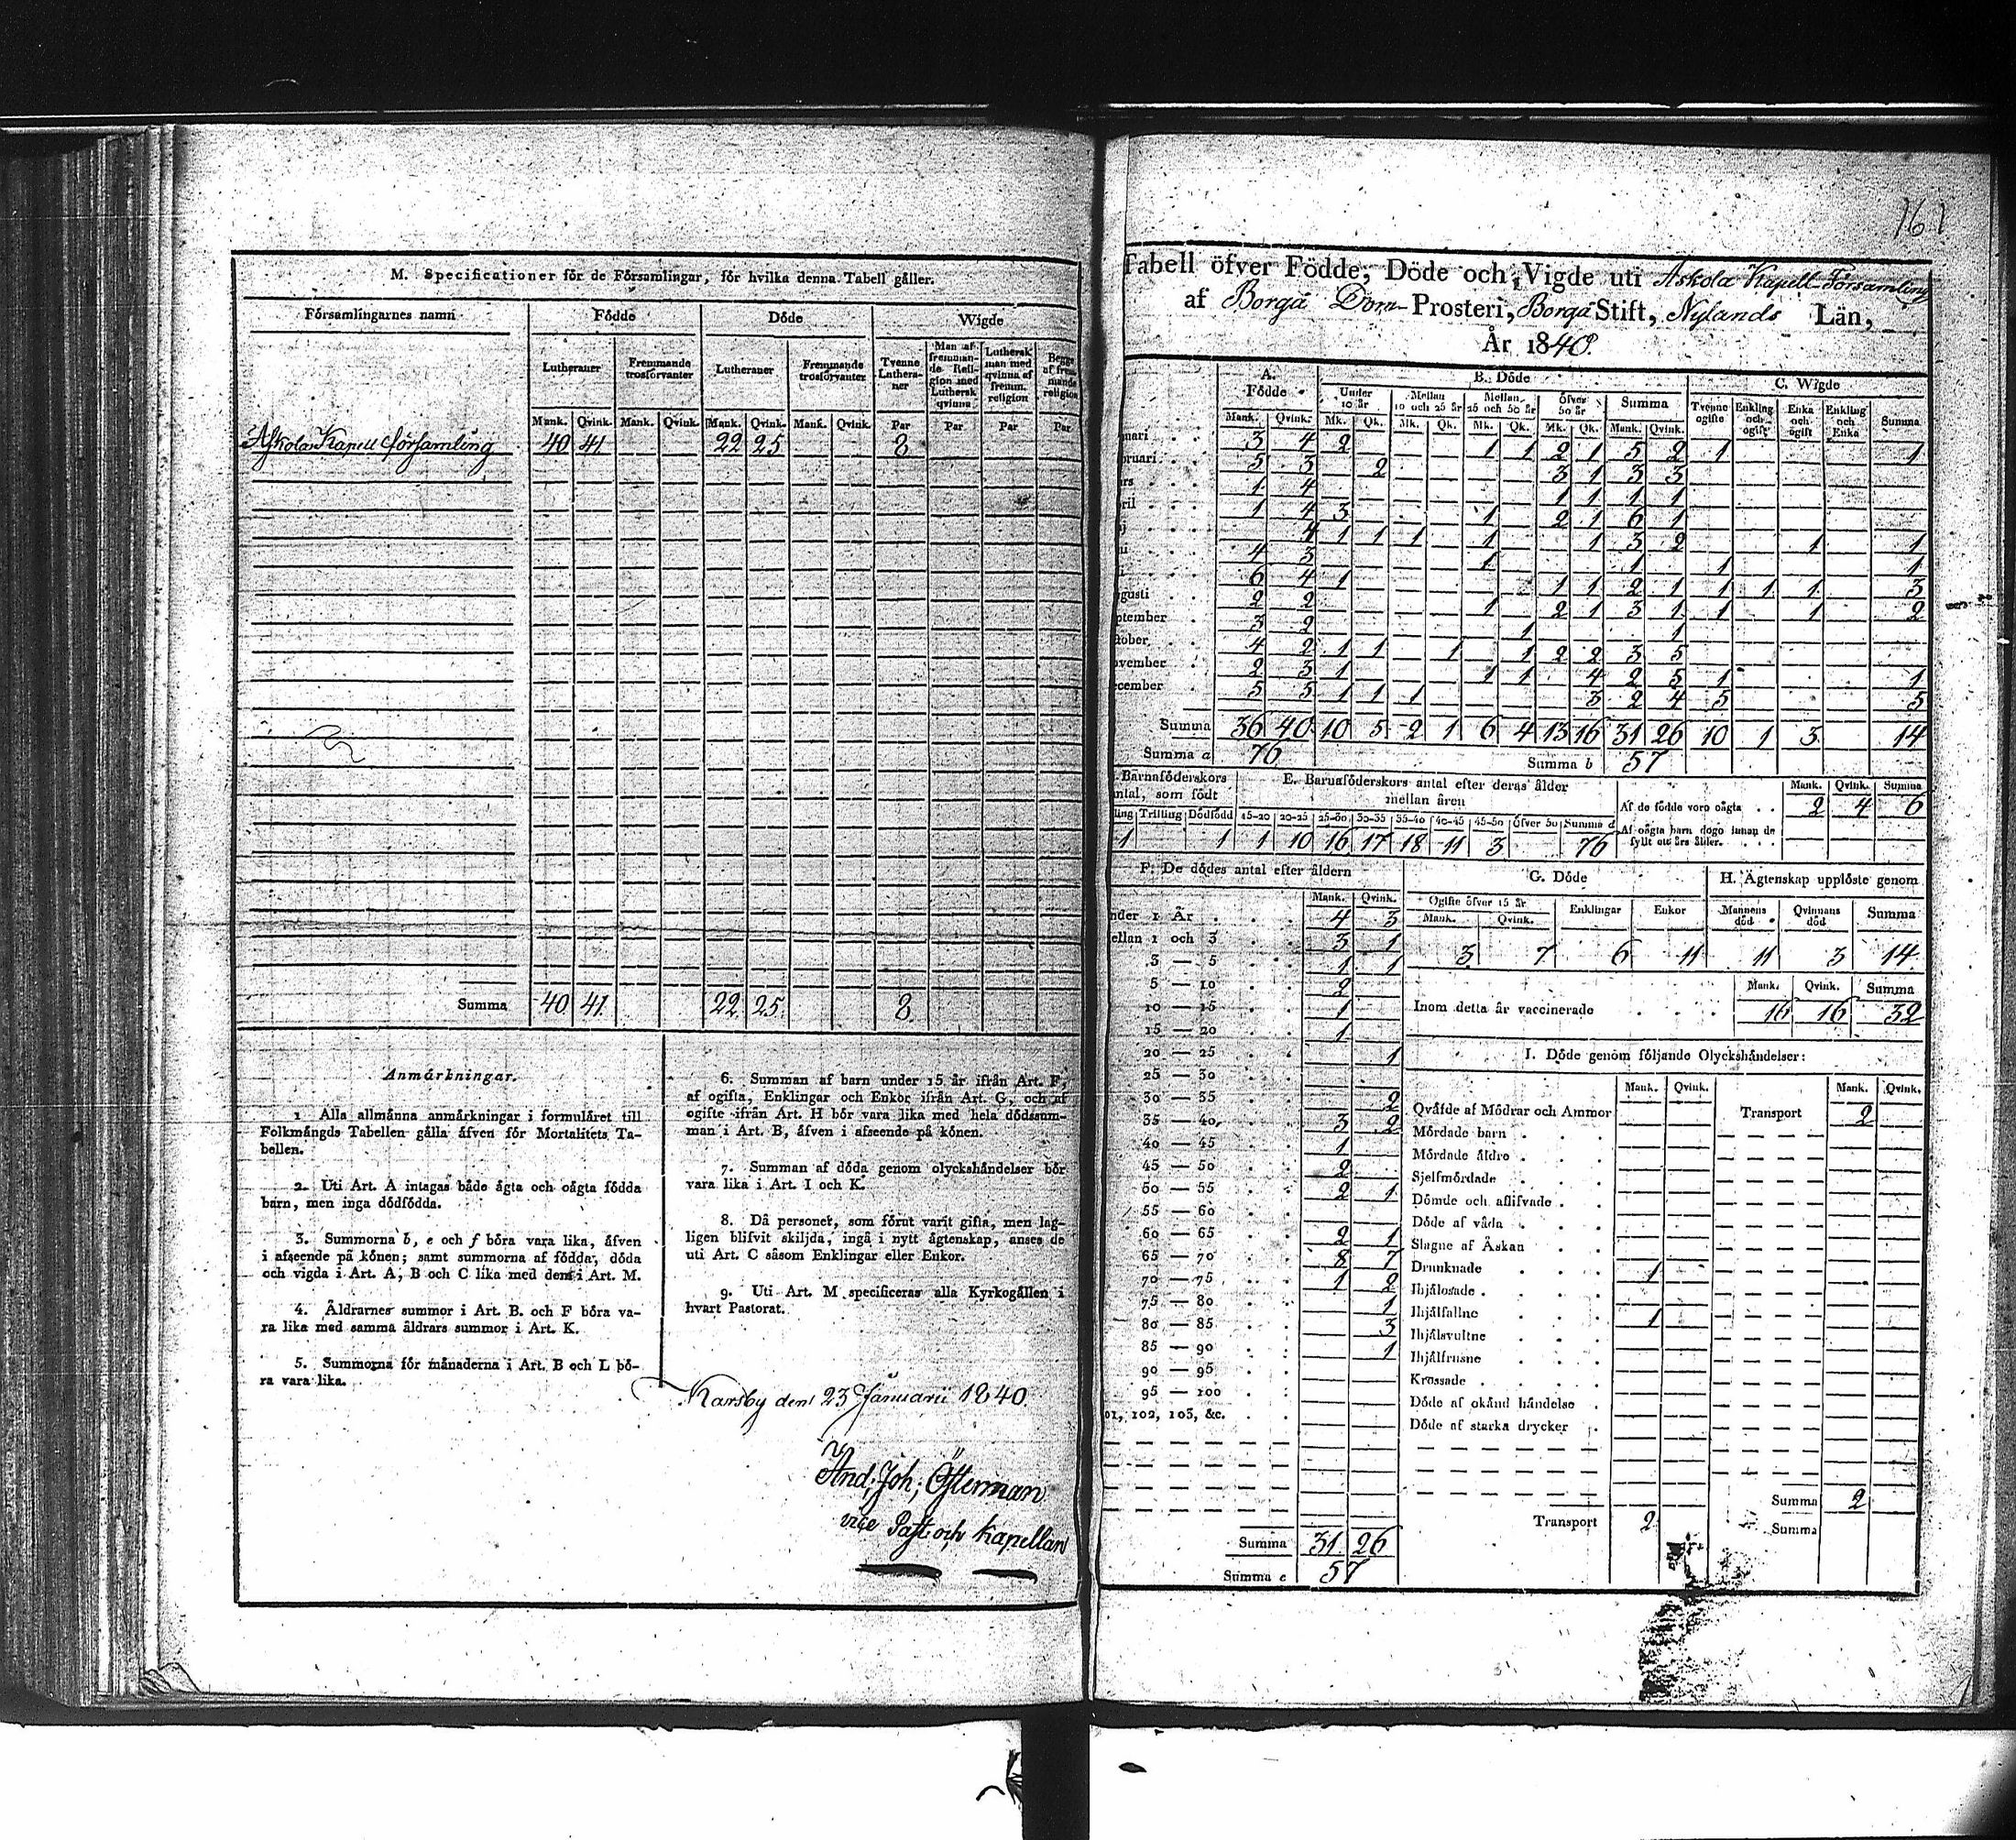 M. Specificationer för de Församlingar, för hvilka denna Tabell gäller.
Församlingarnes namn Födde Döde Wigde
Lutheraner Fremmande trosförvanter Lutheraner Fremmande trosförvanter Tvenne Lutheraner Man af fremmande Religion med Luthersk qvinna Luthersk man med qvinna af fremm. religion Begge af fremmande religion
Mank. Qvink. Mank. Qvink. Mank. Qvink. Mank. Qvink. Par Par Par Par
Askola Kapell församling 40 41 22 25 8
Summa 40 41. 22. 25. 8.
Anmärkningar.
1 Alla allmänna anmärkningar i formuläret till
Folkmängds Tabellen gälla äfven för Mortalitets Ta-
bellen.
2. Uti Art. A intagas både ägta och oägta födda
barn, men inga dödfödda.
3. Summorna b, e och f böra vara lika, äfven
i afseende på könen; samt summorna af födda, döda
och vigda i Art. A, B och C lika med dem i Art. M.
4. Äldrarnes summor i Art. B. och F böra va-
ra lika med samma äldrars summor i Art. K.
5. Summorna för månaderna i Art. B och L bö-
ra vara lika.
6. Summan af barn under 15 år ifrån Art. F,
af ogifta, Enklingar och Enkor ifrån Art. G, och af
ogifte ifrån Art. H bör vara lika med hela dödssum-
man i Art. B, äfven i afseende på könen.
7. Summan af döda genom olyckshändelser bör
vara lika i Art. I och K.
8. Då personer, som förut varit gifta, men lag-
ligen blifvit skiljda, ingå i nytt ägtenskap, anses de
uti Art. C såsom Enklingar eller Enkor.
9. Uti Art. M specificeras alla Kyrkogällen i
hvart Pastorat.
Karsby den 23 Januarii 1840.
And; Joh; Österman
vice Past och Kapellan
161
Tabell öfver Födde, Döde och Vigde uti Askola Kapell-Församling
af Borgå Dom-Prosteri, Borgå Stift, Nylands Län,
År 1840.
A. Födde B. Döde C. Wigde
Under 10 år Mellan 10 och 25 år Mellan 25 och 50 år Öfver 50 år Summa Tvenne ogifte Enkling och ogift Enka och ogift Enkling och Enka Summa
Mank. Qvink. Mk. Qk. Mk. Qk. Mk. Qk. Mk. Qk. Mank. Qvink.
nuari 3 4 2 1 1 2 1 5 2 1 1
bruari 5 3 2 3 1 3 3
ars 1 4 1 1 1 1
pril 1 4 3 1 2 1 6 1
j 4 1 1 1 1 1 3 2 1 1
ni 4 3 1 1 1 1
li 6 4 1 1 1 2 1 1 1 1 3
gusti 2 2 1 2 1 3 1 1 1 2
ptember 3 2 1 1
tober 4 2 1 1 1 1 2 2 3 5
ovember 2 3 1 1 1 4 2 5 1 1
ecember 5 5 1 1 1 3 2 4 5 5
Summa 36 40 10 5 2 1 6 4 13 16 31 26 10 1 3 14
Summa a 76 Summa b 57
Barnaföderskors antal, som födt
ling Trilling Dödfödd
1 1
E. Barnaföderskors antal efter deras ålder
mellan åren
15-20 20-25 25-30 30-35 35-40 40-45 45-50 öfver 50 Summa d
1 10 16 17 18 11 3 76
Mank. Qvink. Summa
Af de födde voro oägta 2 4 6
Af oägta barn dogo innan de
fyllt ett års ålder.
F. De dödes antal efter åldern
Mank. Qvink.
nder 1 År 4 3
ellan 1 och 3 3 1
3 — 5 1 1
5 — 10 2
10 — 15 1
15 — 20 1
20 — 25 1
25 — 30
30 — 35 2
35 — 40 3 2
40 — 45 1
45 — 50 2
50 — 55 2 1
55 — 60
60 — 65 2 1
65 — 70 8 7
70 — 75 1 2
75 — 80 1
80 — 85 3
85 — 90 1
90 — 95
95 — 100
101, 102, 103, &c.
Summa 31 26
Summa c 57
G. Döde
Ogifte öfver 15 år Enklingar Enkor
Mank. Qvink.
3 7 6 11
H. Ägtenskap upplöste genom
Mannens död Qvinnans död Summa
11 3 14
Mank. Qvink. Summa
Inom detta år vaccinerade 16 16 32
I. Döde genom följande Olyckshändelser:
Mank. Qvink. Mank. Qvink.
Qväfde af Mödrar och Ammor Transport 2
Mördade barn
Mördade äldre
Sjelfmördade
Dömde och aflifvade
Döde af våda
Slagne af Åskan
Drunknade 1
Ihjälosade
Ihjälfallne 1
Ihjälsvultne
Ihjälfrusne
Krossade
Döde af okänd händelse
Döde af starka drycker
Summa 2
Transport 2 Summa